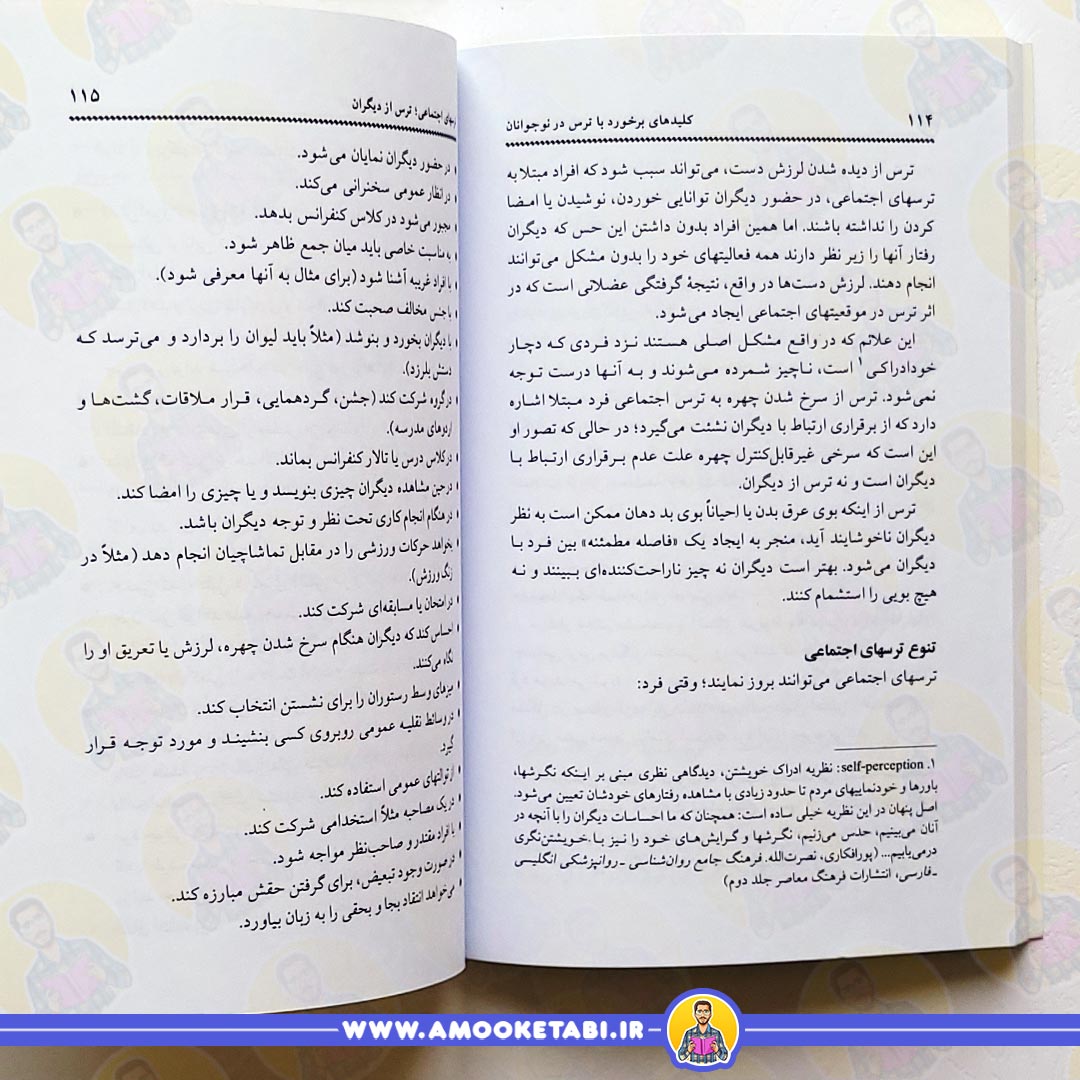 ۱۱۴
کلیدهای برخورد با ترس در نوجوانان
ترس از دیده شدن لرزش دست، می‌تواند سبب شود که افراد مبتلا به
ترسهای اجتماعی، در حضور دیگران توانایی خوردن، نوشیدن یا امضا
کردن را نداشته باشند. اما همین افراد بدون داشتن این حس که دیگران
رفتار آنها را زیر نظر دارند همه فعالیتهای خود را بدون مشکل می‌توانند
انجام دهند. لرزش دست‌ها در واقع، نتیجهٔ گرفتگی عضلانی است که در
اثر ترس در موقعیتهای اجتماعی ایجاد می‌شود.
این علائم که در واقع مشکل اصلی هستند نزد فردی که دچار
خودادراکی۱ است، ناچیز شمرده می‌شوند و به آنها درست توجه
نمی‌شود. ترس از سرخ شدن چهره به ترس اجتماعی فرد مبتلا اشاره
دارد که از برقراری ارتباط با دیگران نشئت می‌گیرد؛ در حالی که تصور او
این است که سرخی غیرقابل‌کنترل چهره علت عدم برقراری ارتباط با
دیگران است و نه ترس از دیگران.
ترس از اینکه بوی عرق بدن یا احیاناً بوی بد دهان ممکن است به نظر
دیگران ناخوشایند آید، منجر به ایجاد یک «فاصله مطمئنه» بین فرد با
دیگران می‌شود. بهتر است دیگران نه چیز ناراحت‌کننده‌ای ببینند و نه
هیچ بویی را استشمام کنند.
تنوع ترسهای اجتماعی
ترسهای اجتماعی می‌توانند بروز نمایند؛ وقتی فرد:
۱. self-perception: نظریه ادراک خویشتن، دیدگاهی نظری مبنی بر اینکه نگرشها،
باورها و خودنماییهای مردم تا حدود زیادی با مشاهده رفتارهای خودشان تعیین می‌شود.
اصل پنهان در این نظریه خیلی ساده است: همچنان که ما احساسات دیگران را با آنچه در
آنان می‌بینیم، حدس می‌زنیم، نگرشها و گرایش‌های خود را نیز با خویشتن‌نگری
درمی‌یابیم... (پورافکاری، نصرت‌الله. فرهنگ جامع روان‌شناسی ـ روانپزشکی انگلیسی
ـ فارسی، انتشارات فرهنگ معاصر جلد دوم)
اجتماعی؛ ترس از دیگران
۱۱۵
در حضور دیگران نمایان می‌شود.
در انظار عمومی سخنرانی می‌کند.
مجبور می‌شود در کلاس کنفرانس بدهد.
به مناسبت خاصی باید میان جمع ظاهر شود.
با افراد غریبه آشنا شود (برای مثال به آنها معرفی شود).
با جنس مخالف صحبت کند.
با دیگران بخورد و بنوشد (مثلاً باید لیوان را بردارد و می‌ترسد که
دستش بلرزد).
در گروه شرکت کند (جشن، گردهمایی، قرار ملاقات، گشت‌ها و
اردوهای مدرسه).
در کلاس درس یا تالار کنفرانس بماند.
در حین مشاهده دیگران چیزی بنویسد و یا چیزی را امضا کند.
در هنگام انجام کاری تحت نظر و توجه دیگران باشد.
بخواهد حرکات ورزشی را در مقابل تماشاچیان انجام دهد (مثلاً در
زنگ ورزش).
در امتحان یا مسابقه‌ای شرکت کند.
احساس کند که دیگران هنگام سرخ شدن چهره، لرزش یا تعریق او را
نگاه می‌کنند.
میزهای وسط رستوران را برای نشستن انتخاب کند.
در وسائط نقلیه عمومی روبروی کسی بنشیند و مورد توجه قرار
گیرد.
از توالتهای عمومی استفاده کند.
در یک مصاحبه مثلاً استخدامی شرکت کند.
با افراد مقتدر و صاحب‌نظر مواجه شود.
در صورت وجود تبعیض، برای گرفتن حقش مبارزه کند.
می‌خواهد انتقاد بجا و بحقی را به زبان بیاورد.
WWW.AMOOKETABI.IR